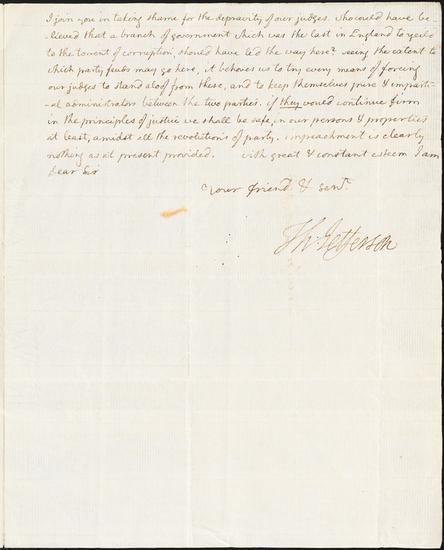 I join you in taking shame for the depravity of our judges. who could have be
lieved that a branch of government which was the last in England to yield
to the torrent of corruption, should have led the way here? seeing the extent to
which party feuds may go here, it behoves us to try every means of forcing
our judges to stand aloof from these, and to keep themselves pure & imparti-
-al administrators between the two parties. if they would continue firm
in the principles of justice we shall be safe, in our persons & properties
at least, amidst all the revolutions of party. impeachment is clearly
nothing as at present provided. with great & constant esteem I am
Dear Sir
Your friend & servt.
Th: Jefferson